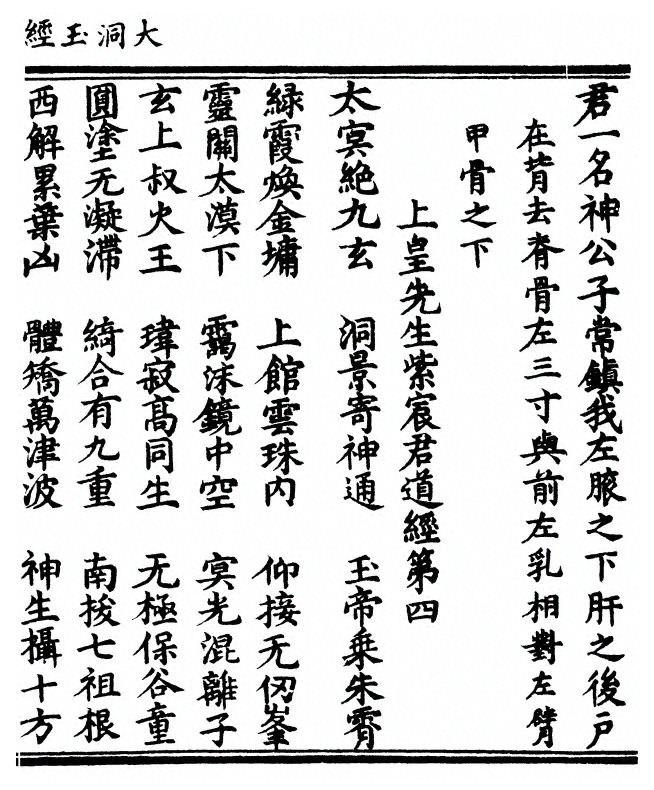 大洞玉經
君一名神公子常鎮我左腋之下肝之後戶
在背去脊骨左三寸與前左乳相對左臂
甲骨之下
上皇先生紫宸君道經第四
太冥絶九玄 洞景寄神通 玉帝乗朱霄
緑霞煥金墉 上館雲珠内 仰接无仞峯
靈關太漠下 靄沫鏡中空 冥光混離子
玄上叔火王 瑋寂髙同生 无極保谷童
圓塗无凝滯 綺合有九重 南拔七祖根
西解累葉凶 體矯萬津波 神生攝十方